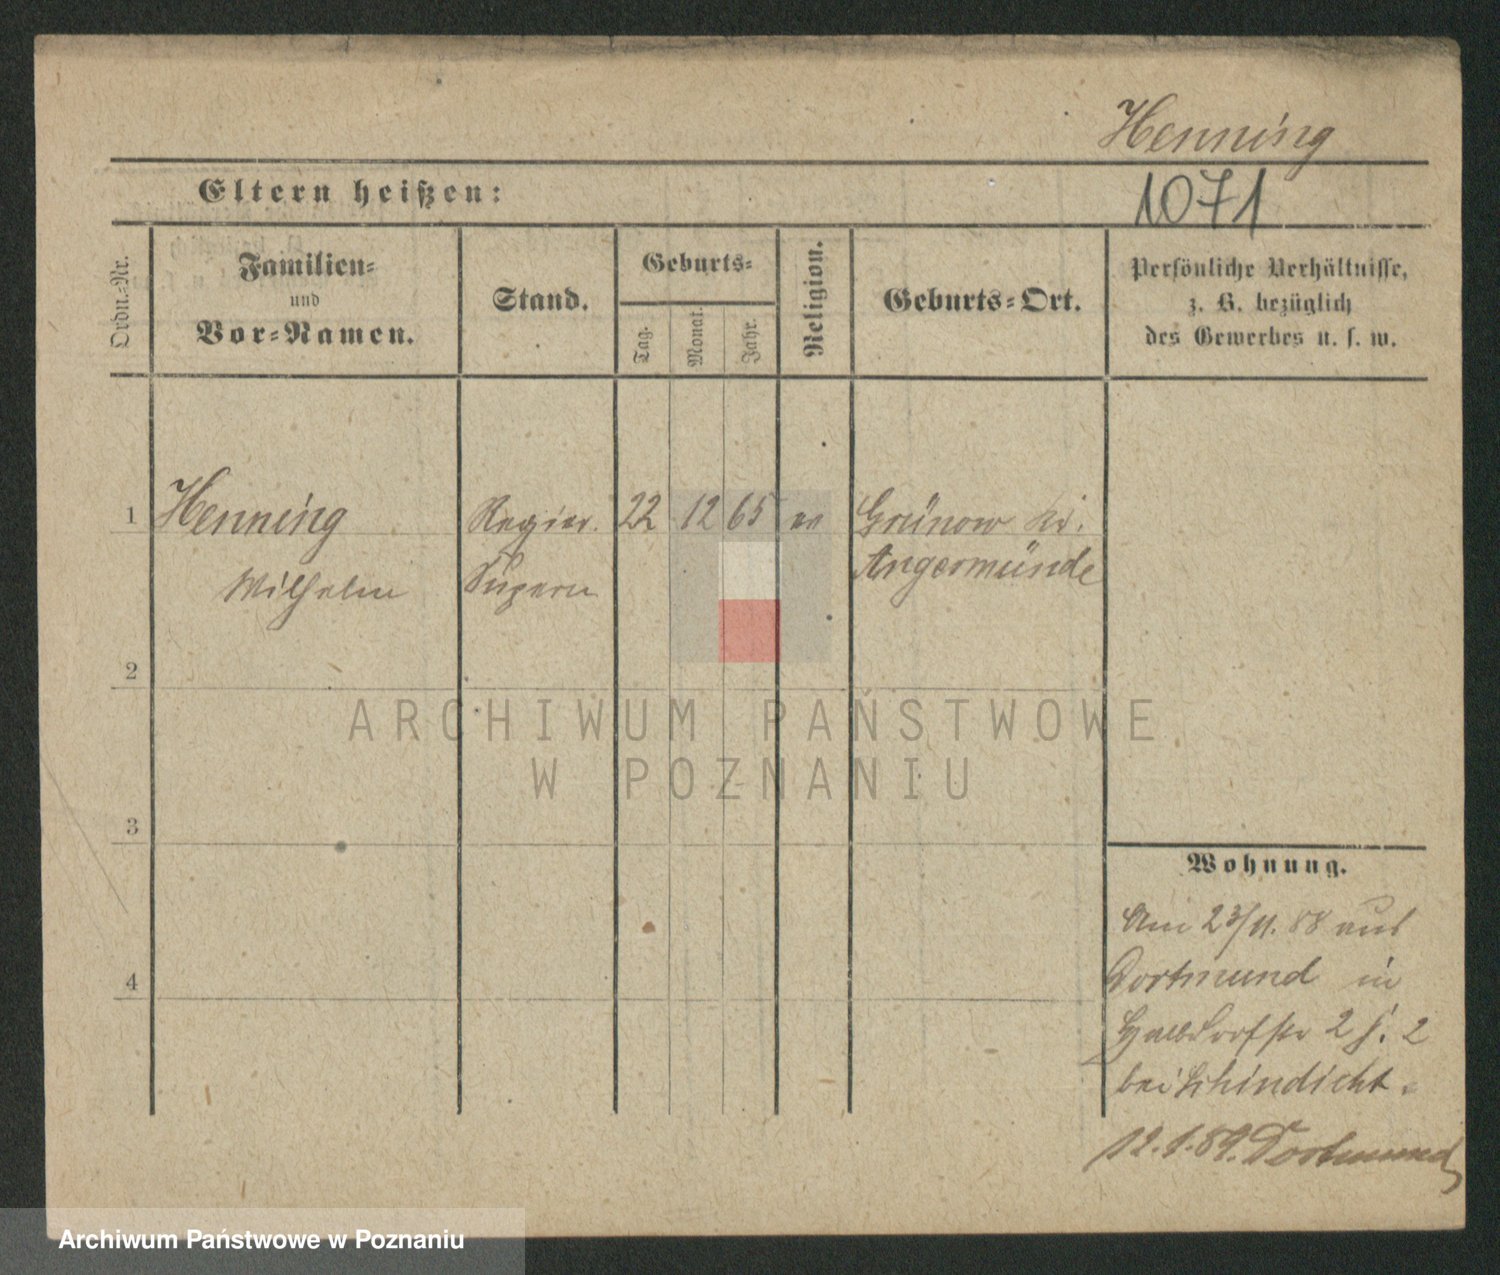 Henning
1071
Eltern heißen:
Ordn.-Nr.
Familien-
und
Vor-Namen.
Stand.
Geburts-
Tag.
Monat.
Jahr.
Religion.
Geburts-Ort.
Persönliche Verhältnisse,
z. B. bezüglich
des Gewerbes u. s. w.
1
Henning
Wilhelm
Regier.
Supern
22
12
65
ev
Grünow Kr.
Angermünde
2
3
4
Wohnung.
Am 23/11. 88 aus
Dortmund in
Halbdorfstr 2 H. 2
bei
12.1.89. Dortmund
ARCHIWUM PAŃSTWOWE
W POZNANIU
Archiwum Państwowe w Poznaniu